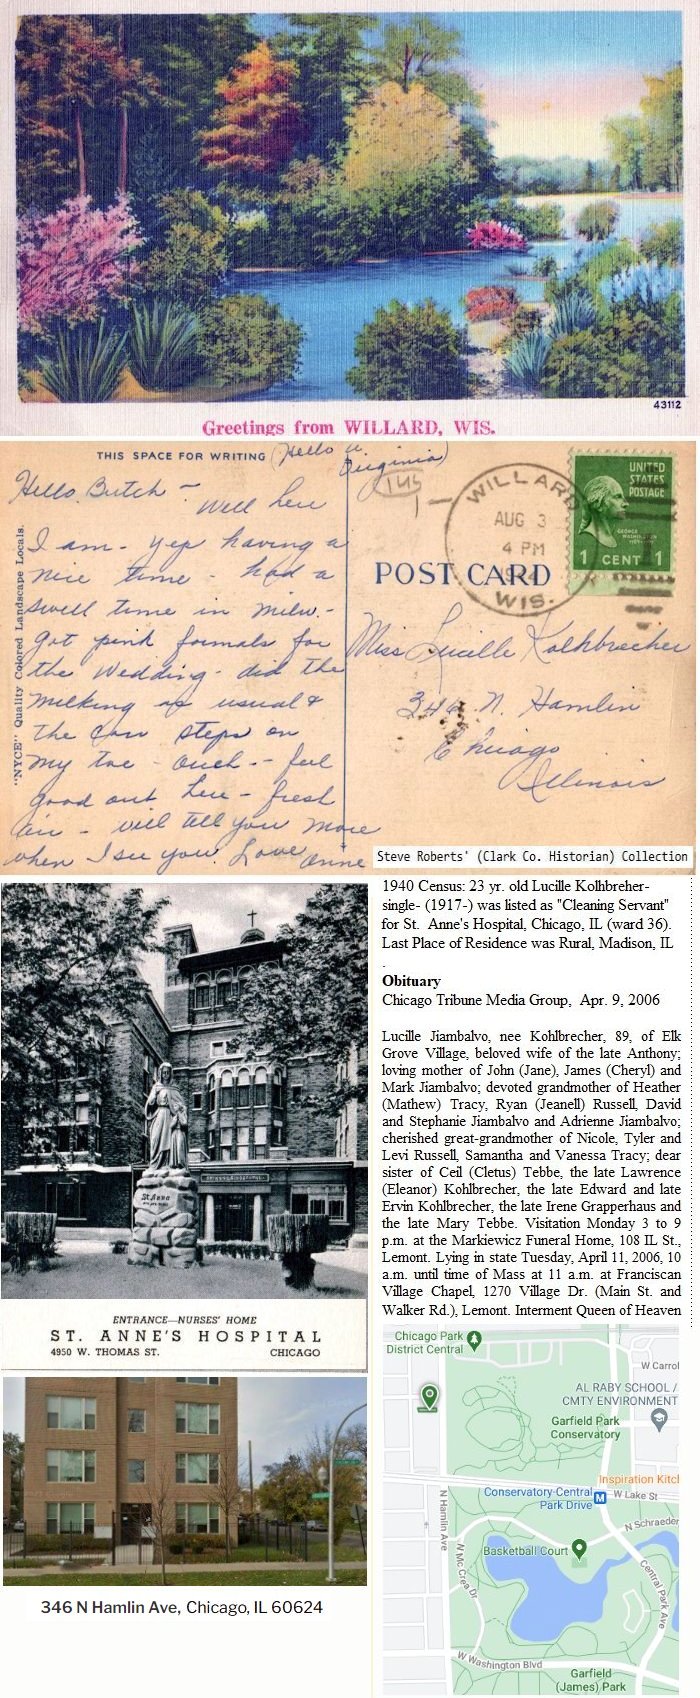 43112
Greetings from WILLARD, WIS.
THIS SPACE FOR WRITING
(Hello to
Virginia)
Hello Butch -
Well here
I am - yep having a
nice time - had a
swell time in Milw. -
got pink formals for
the Wedding - did the
milking as usual &
the cow steps on
my toe - Ouch - - feel
good out here - fresh
air - will tell you more
when I see you. Love Anne
"NYCE" Quality Colored Landscape Locals.
145
WILLARD
AUG 3
4 PM
WIS.
UNITED
STATES
POSTAGE
GEORGE
WASHINGTON
1 CENT 1
POST CARD
Miss Lucille Kolhbrecher
346 N. Hamlin
Chicago
Illinois
Steve Roberts' (Clark Co. Historian) Collection
1940 Census: 23 yr. old Lucille Kolhbreher-
single- (1917-) was listed as "Cleaning Servant"
for St. Anne's Hospital, Chicago, IL (ward 36).
Last Place of Residence was Rural, Madison, IL
.
Obituary
Chicago Tribune Media Group, Apr. 9, 2006
Lucille Jiambalvo, nee Kohlbrecher, 89, of Elk
Grove Village, beloved wife of the late Anthony;
loving mother of John (Jane), James (Cheryl) and
Mark Jiambalvo; devoted grandmother of Heather
(Mathew) Tracy, Ryan (Jeanell) Russell, David
and Stephanie Jiambalvo and Adrienne Jiambalvo;
cherished great-grandmother of Nicole, Tyler and
Levi Russell, Samantha and Vanessa Tracy; dear
sister of Ceil (Cletus) Tebbe, the late Lawrence
(Eleanor) Kohlbrecher, the late Edward and late
Ervin Kohlbrecher, the late Irene Grapperhaus and
the late Mary Tebbe. Visitation Monday 3 to 9
p.m. at the Markiewicz Funeral Home, 108 IL St.,
Lemont. Lying in state Tuesday, April 11, 2006, 10
a.m. until time of Mass at 11 a.m. at Franciscan
Village Chapel, 1270 Village Dr. (Main St. and
Walker Rd.), Lemont. Interment Queen of Heaven
St. Anne
ENTRANCE—NURSES' HOME
ST. ANNE'S HOSPITAL
4950 W. THOMAS ST. CHICAGO
346 N Hamlin Ave, Chicago, IL 60624
Chicago Park
District Central
W Carrol
AL RABY SCHOOL /
CMTY ENVIRONMENT
Garfield Park
Conservatory
Inspiration Kitcl
Conservatory-Central
Park Drive
M
W Lake St
N Schraeder
N Hamlin Ave
Basketball Court
N Mc Crea Dr
Central Park Ave
W Washington Blvd
Garfield
(James) Park